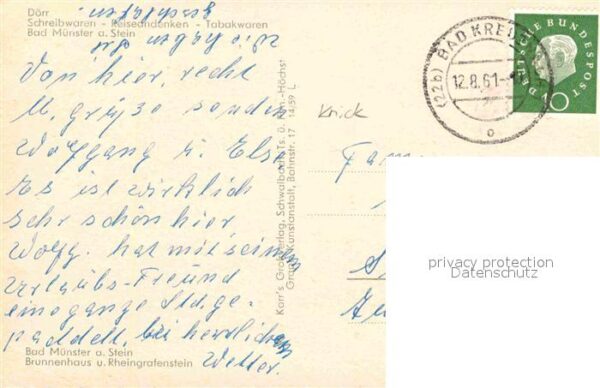 Dörr
Schreibwaren - Reiseandenken - Tabakwaren
Bad Münster a. Stein
Von hier, recht
l. grüße senden
Wolfgang u. Else
Es ist wirklich
sehr schön hier
Wolfg. hat mit seinem
Urlaubs-Freund
eine ganze Std. ge-
paddelt, bei herrlichem
Wetter.
Bad Münster a. Stein
Brunnenhaus u. Rheingrafenstein
Karr's Großverlag, Schwalbach/Ts. ü. Ffm.-Höchst
Graph. Kunstanstalt, Bahnstr. 17 14/59 L
Krick
Fam.
(22b) BAD KREUZ
12.8.61
DEUTSCHE BUNDESPOST
10
privacy protection
Datenschutz